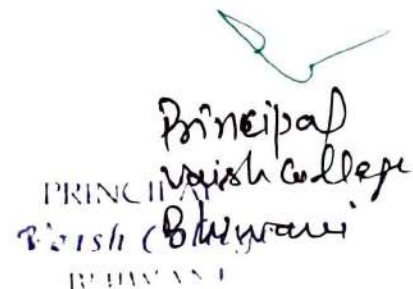 Principal
Vaish College
Bhiwani
PRINCIPAL
Vaish
BHIWANI